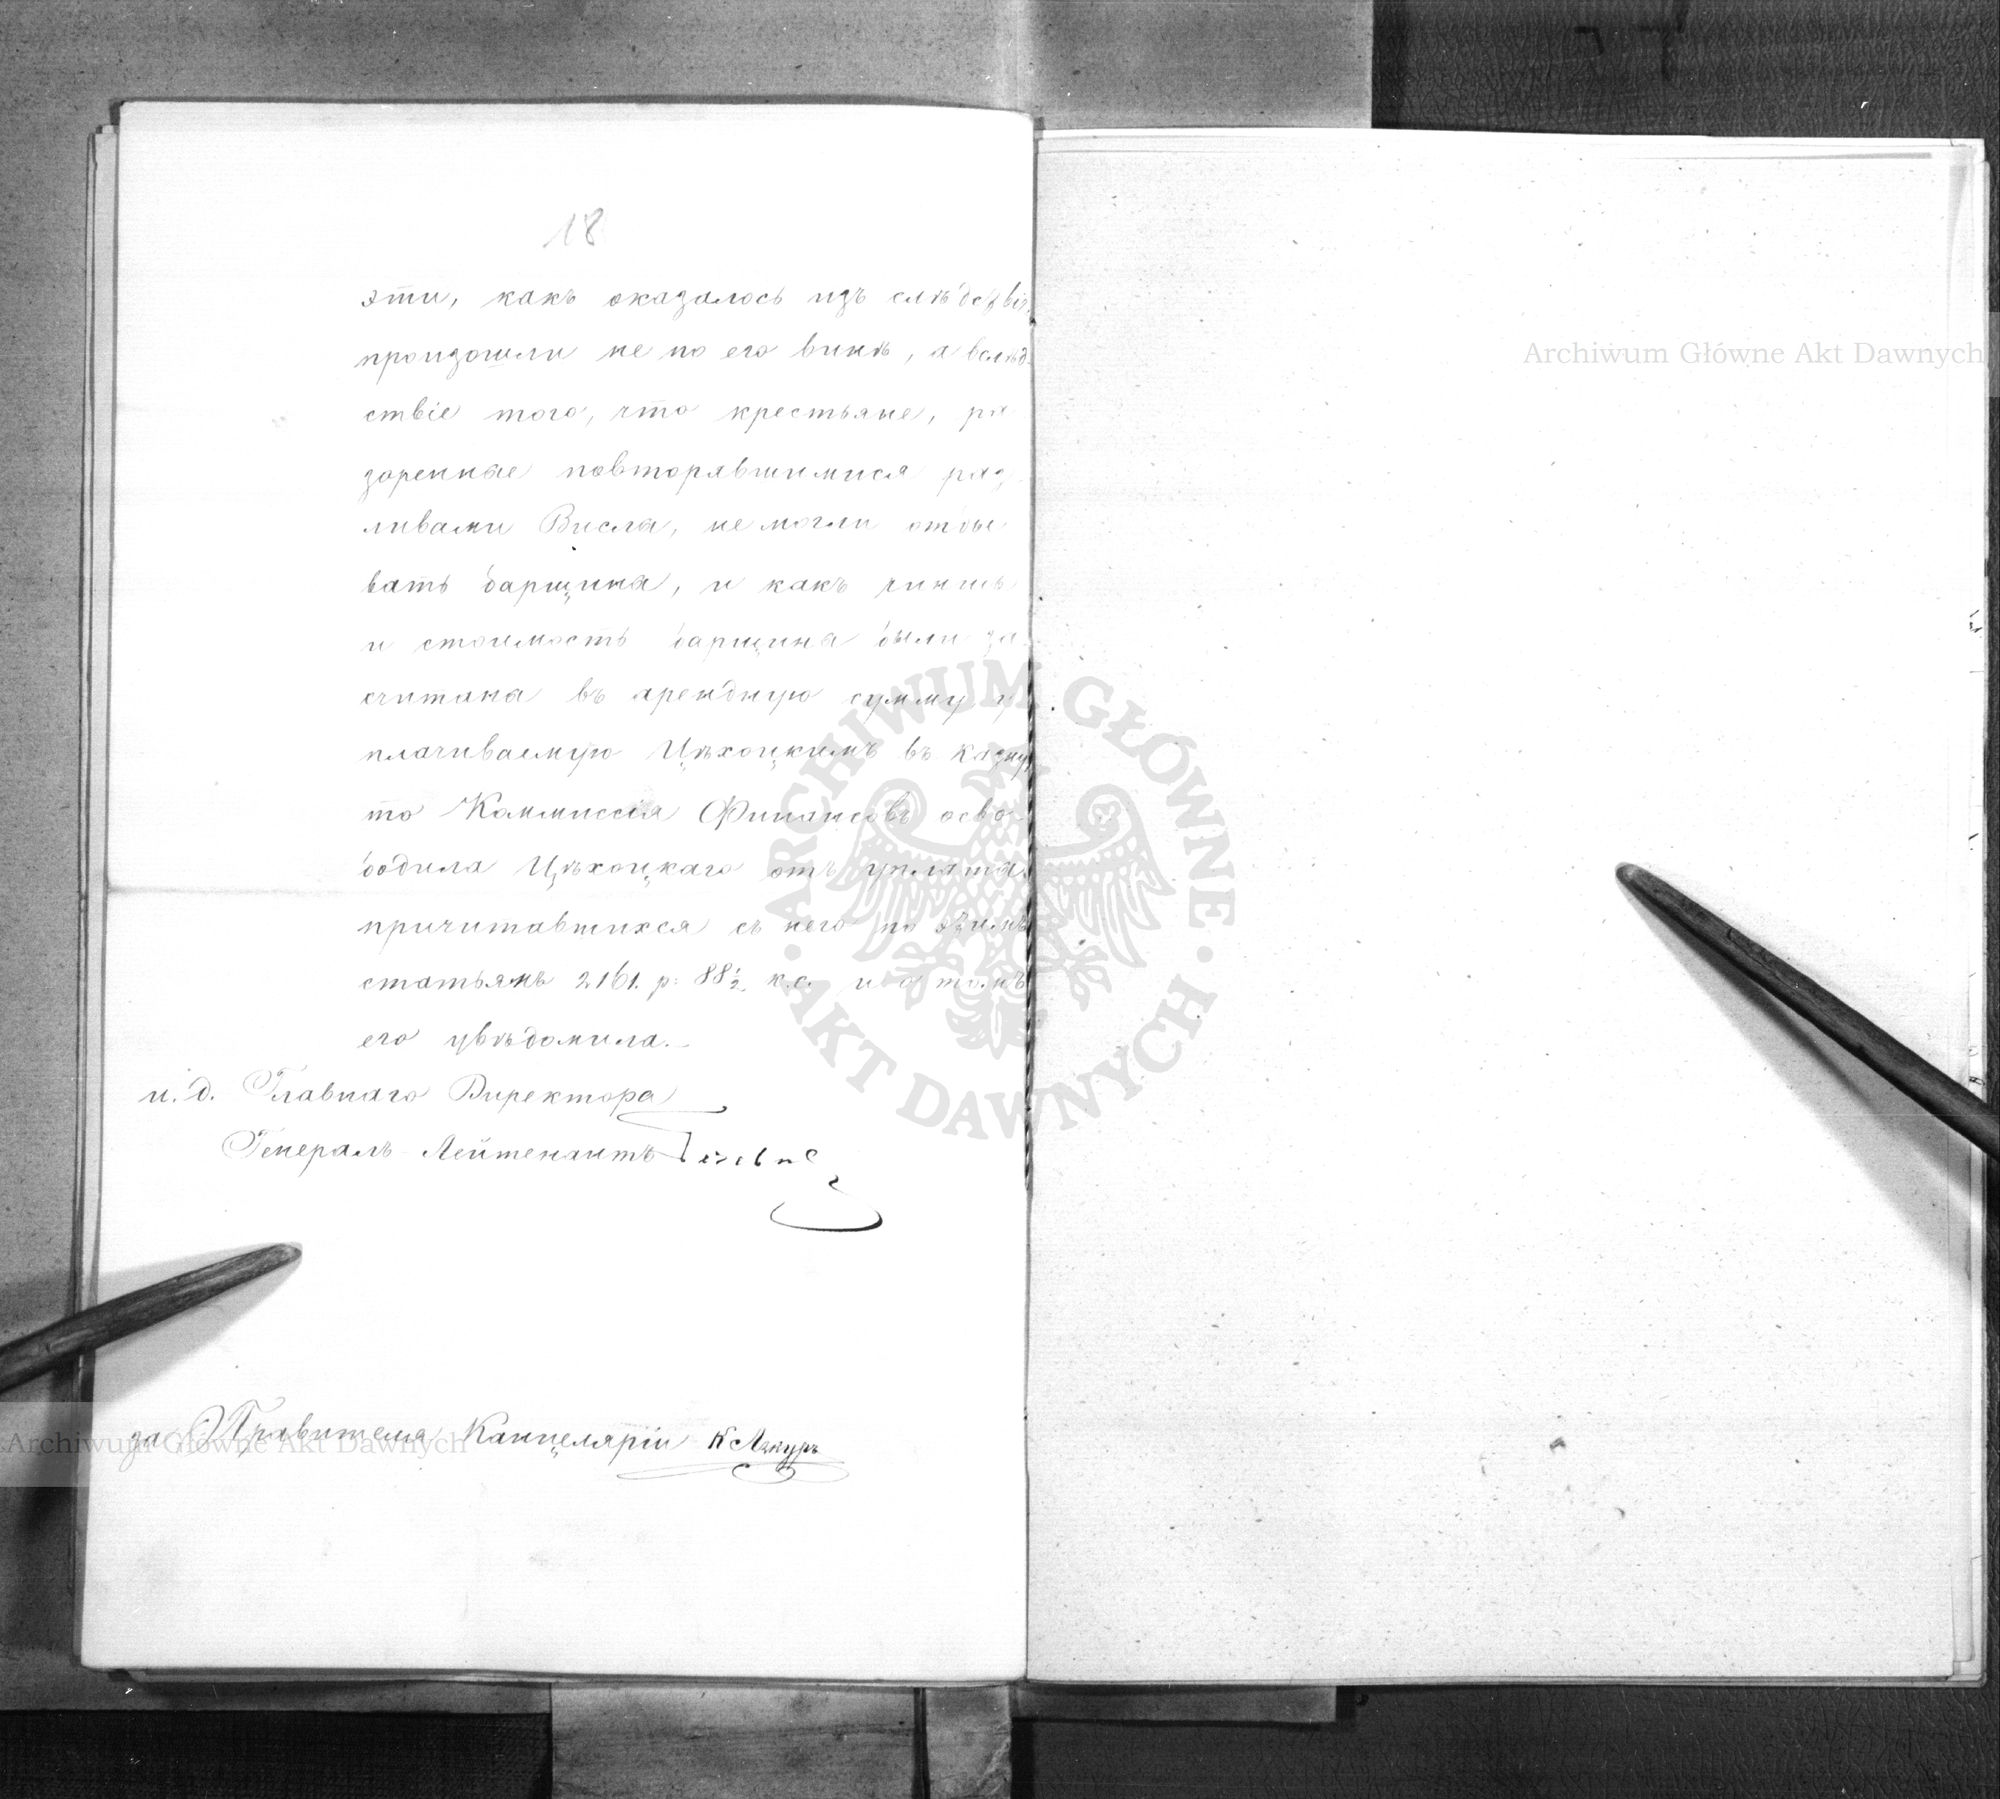 18
эти, какъ оказалось изъ слѣдствія,
произошли не по его винѣ, а вслѣд-
ствіе того, что крестьяне, ра
зоренные повторявшимися раз
ливами Вислы, не могли отбы
вать барщины, и какъ чиншъ
и стоимость барщины были за
считаны въ арендную сумму у
плачиваемую Цѣхоцкимъ въ казну
то Коммиссія Финансовъ осво-
бодила Цѣхоцкаго отъ уплаты
причитавшихся съ него по этимъ
статьямъ 2161. р: 88½ к.с. и о томъ
его увѣдомила.
и. д. Главнаго Директора
Генералъ-Лейтенантъ
за Правителя Канцеляріи
Archiwum Główne Akt Dawnych
Archiwum Główne Akt Dawnych
ARCHIWUM GŁÓWNE AKT DAWNYCH